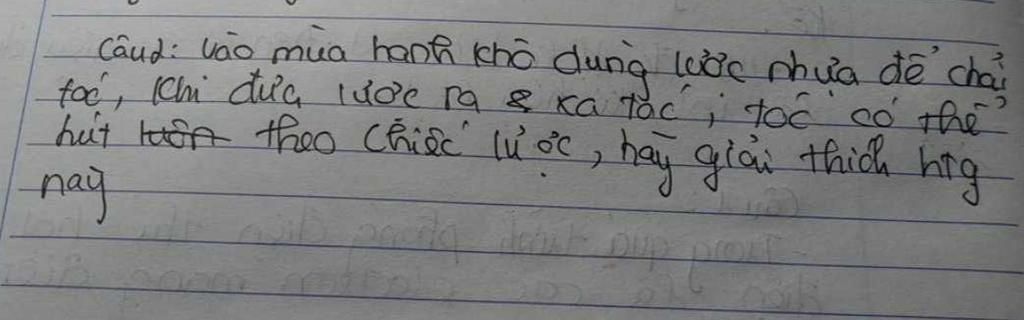 Câu2: Vào mùa hanh khô dùng lược nhựa để chải
tóc, khi đưa lược ra & xa tóc, tóc có thể
hút theo chiếc lược, hãy giải thích htg
này